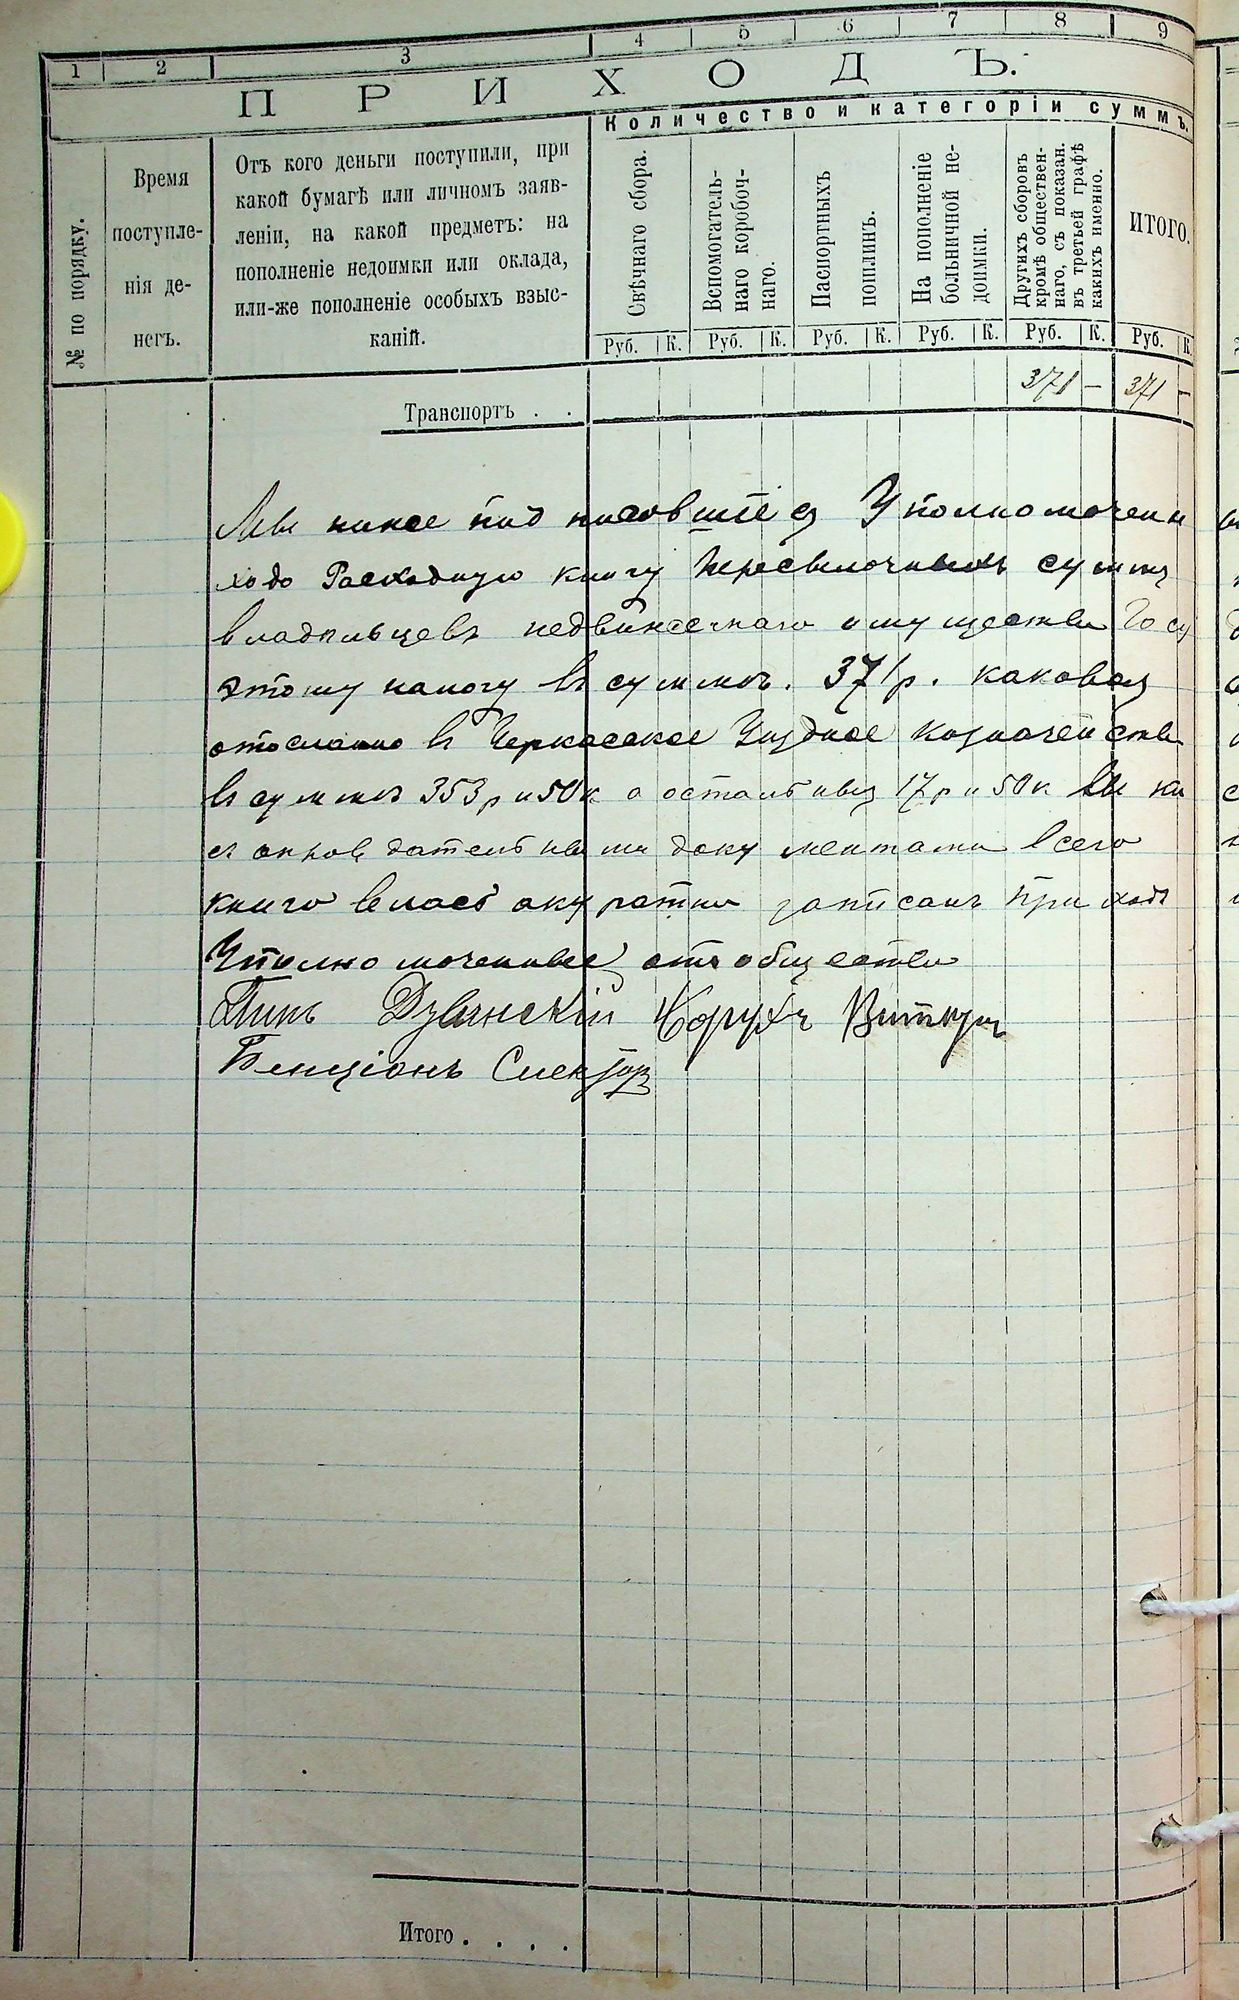 1 2 3 4 5 6 7 8 9
ПРИХОДЪ.
Количество и категоріи суммъ.
№ по порядку.
Время
поступле-
нія де-
негъ.
Отъ кого деньги поступили, при
какой бумагѣ или личномъ заяв-
леніи, на какой предметъ: на
пополненіе недоимки или оклада,
или-же пополненіе особыхъ взыс-
каній.
Свѣчнаго сбора.
Вспомогатель-
наго коробоч-
наго.
Паспортныхъ
пошлинъ.
На пополненіе
больничной не-
доимки.
Другихъ сборовъ
кромѣ обществен-
наго, съ показан.
въ третьей графѣ
какихъ именно.
ИТОГО.
Руб. К. Руб. К. Руб. К. Руб. К. Руб. К. Руб. К.
Транспортъ . . 371 — 371 —
Мы ниже под писовшiеся Уполномочени
ходо Расходную книгу Пересылочныхъ суммъ
владельцевъ недвижемаго имущества Госу
этому налогу въ суммъ. 371 р. каковая
отослано въ Черкаское Уиздное козначейство
въ суммъ 353 р и 50 к а остальныя 17 р и 50 к
документами всего
книго велась акуратно записанъ При ходъ
Уполно моченные отъ общества
Дувинскiй Борухъ
Бенцiонъ Спекторъ
Итого . . . .